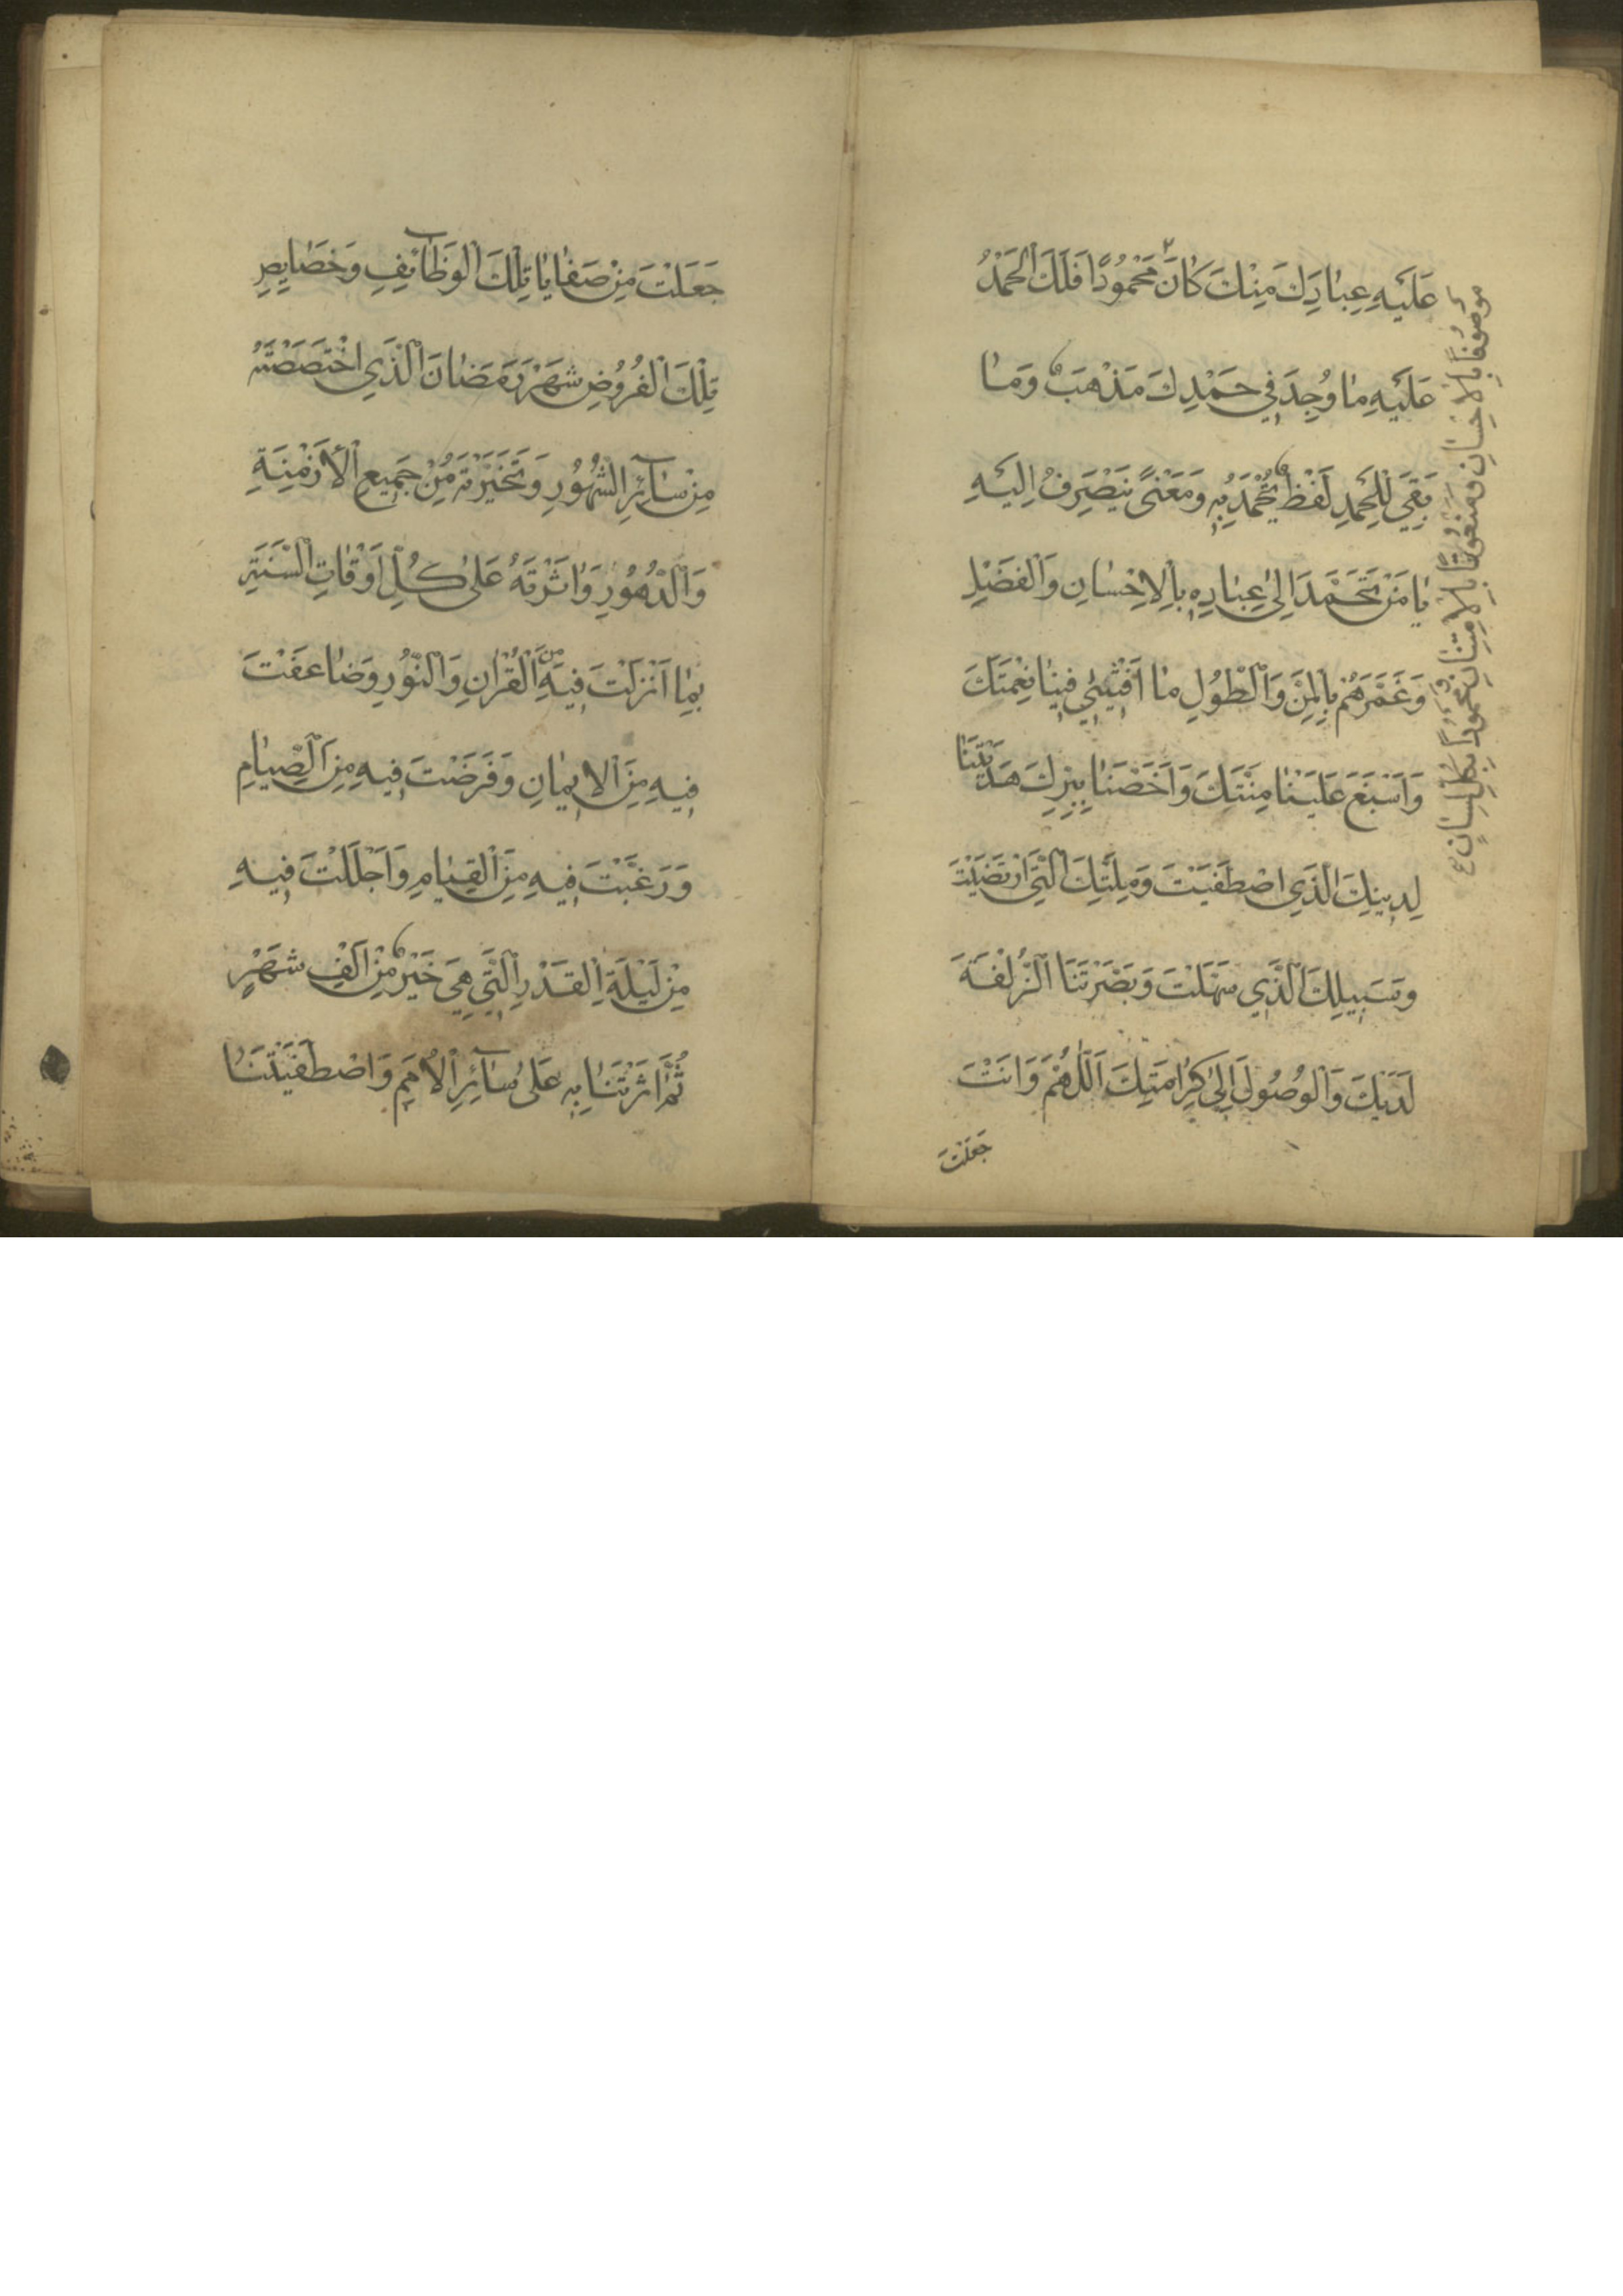 عَلَيْهِ عِبَادَكَ مِنْكَ كَانَ مَحْمُودًا فَلَكَ الْحَمْدُ
عَلَيْهِ مَا وُجِدَ فِي حَمْدِكَ مَذْهَبٌ وَمَا
بَقِيَ لِلْحَمْدِ لَفْظٌ تُحْمَدُ بِهِ وَمَعْنًى يَنْصَرِفُ اِلَيْهِ
يَا مَنْ تَحَمَّدَ اِلَى عِبَادِهِ بِالْاِحْسَانِ وَالْفَضْلِ
وَغَمَرَهُمْ بِالْمَنِّ وَالْطَّوْلِ مَا اَفْشٰى فِينَا نِعْمَتَكَ
وَاَسْبَغَ عَلَيْنَا مِنَّتَكَ وَاَخَصَّنَا بِبِرِّكَ هَدَيْتَنَا
لِدِينِكَ الَّذِي اصْطَفَيْتَ وَمِلَّتِكَ الَّتِي ارْتَضَيْتَ
وَسَبِيلِكَ الَّذِي سَهَّلْتَ وَبَصَّرْتَنَا الزُّلْفَةَ
لَدَيْكَ وَالْوُصُولَ اِلَى كَرَامَتِكَ اَللّٰهُمَّ وَاَنْتَ
جَعَلْتَ
مَوْصُوفًا بِالْاِحْسَانِ وَمَنْعُوتًا بِالْاِمْتِنَانِ وَمَحْمُودًا بِكُلِّ لِسَانٍ
جَعَلْتَ مِنْ صَفَايَا تِلْكَ الْوَظَآئِفِ وَخَصَايِصِ
تِلْكَ الْفُرُوضِ شَهْرَ رَمَضَانَ الَّذِي اخْتَصَصْتَهُ
مِنْ سَآئِرِ الشُّهُورِ وَتَخَيَّرْتَهُ مِنْ جَمِيعِ الْاَزْمِنَةِ
وَالْدُّهُورِ وَاٰثَرْتَهُ عَلَى كُلِّ اَوْقَاتِ السَّنَةِ
بِمَا اَنْزَلْتَ فِيهِ مِنَ الْقُرْاٰنِ وَالنُّورِ وَضَاعَفْتَ
فِيهِ مِنَ الْاِيمَانِ وَفَرَضْتَ فِيهِ مِنَ الصِّيَامِ
وَرَغَّبْتَ فِيهِ مِنَ الْقِيَامِ وَاَجْلَلْتَ فِيهِ
مِنْ لَيْلَةِ الْقَدْرِ الَّتِي هِيَ خَيْرٌ مِنْ اَلْفِ شَهْرٍ
ثُمَّ اٰثَرْتَنَا بِهِ عَلَى سَآئِرِ الْاُمَمِ وَاصْطَفَيْتَنَا